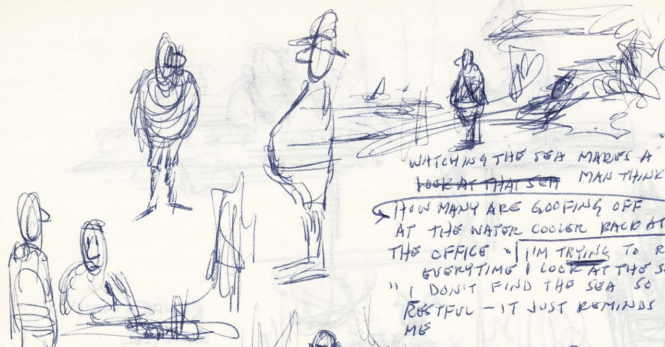 WATCHING THE SEA MAKES A
LOOK AT THAT SEA MAN THINK
HOW MANY ARE GOOFING OFF
AT THE WATER COOLER BACK AT
THE OFFICE " I'M TRYING TO R
EVERYTIME I LOOK AT THE S
" I DON'T FIND THE SEA SO
RESTFUL - IT JUST REMINDS
ME